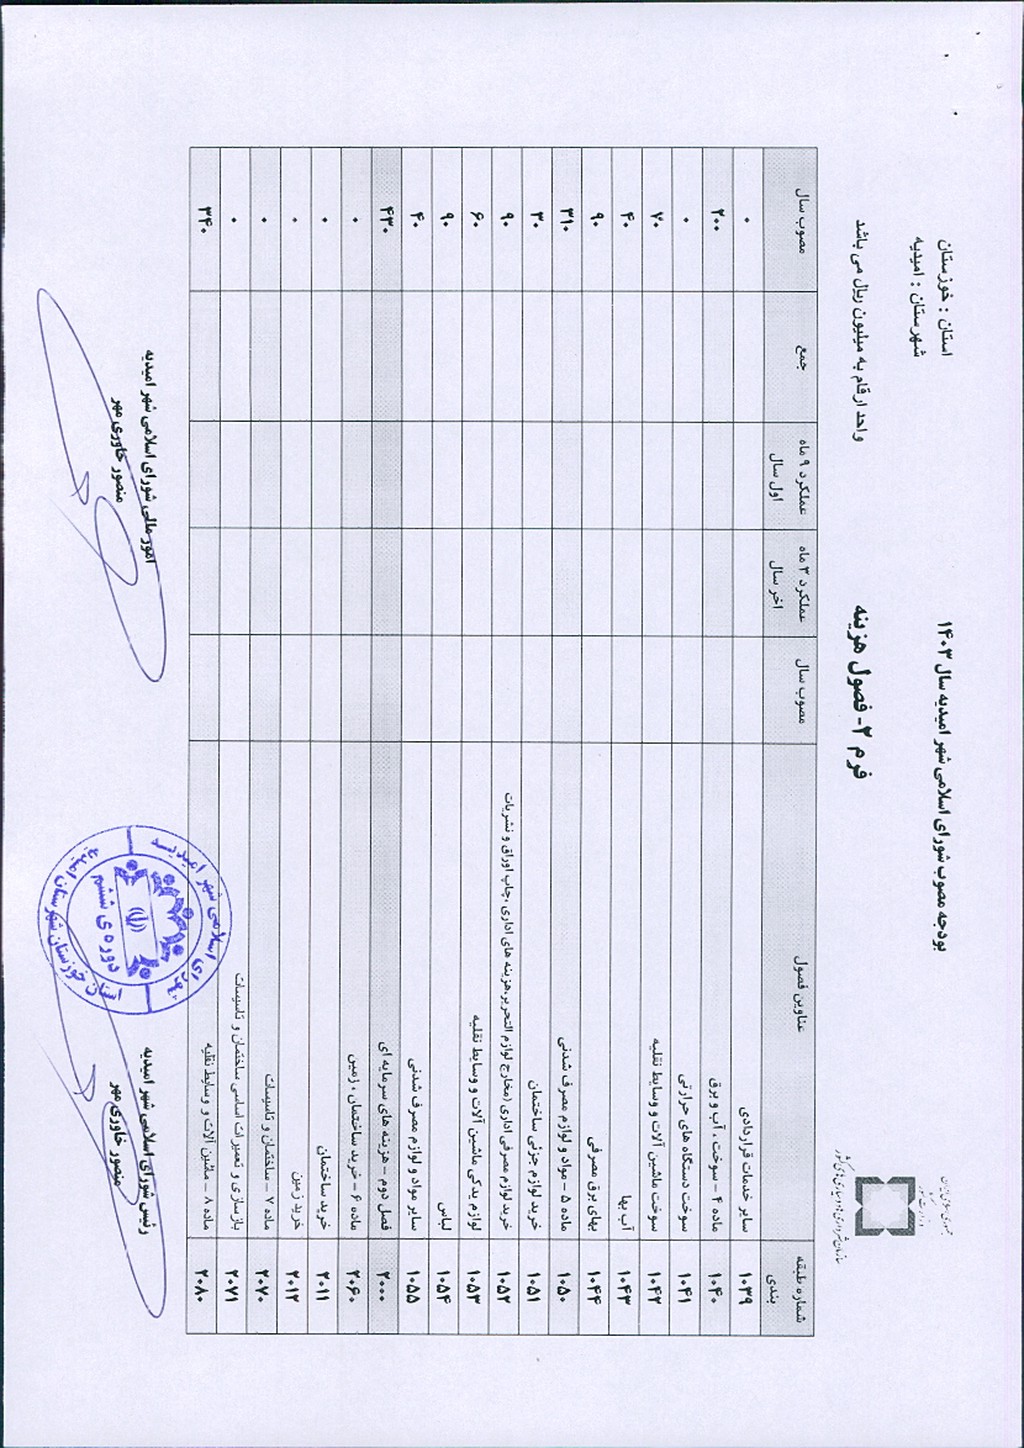 جمهوری اسلامی ایران
وزارت کشور
سازمان شهرداریها و دهیاریهای کشور
بودجه مصوب شورای اسلامی شهر امیدیه سال ۱۴۰۳
استان : خوزستان
شهرستان : امیدیه
فرم ۲- فصول هزینه
واحد ارقام به میلیون ریال می باشد
شماره طبقه بندی عناوین فصول مصوب سال عملکرد ۳ ماه اخر سال عملکرد ۹ ماه اول سال جمع مصوب سال
۱۰۳۹ سایر خدمات قراردادی ۰
۱۰۴۰ ماده ۴ – سوخت ، آب و برق ۲۰۰
۱۰۴۱ سوخت دستگاه های حرارتی ۰
۱۰۴۲ سوخت ماشین آلات و وسایط نقلیه ۷۰
۱۰۴۳ آب بها ۴۰
۱۰۴۴ بهای برق مصرفی ۹۰
۱۰۵۰ ماده ۵ – مواد و لوازم مصرف شدنی ۳۱۰
۱۰۵۱ خرید لوازم جزئی ساختمان ۳۰
۱۰۵۲ خرید لوازم مصرفی اداری (مخارج لوازم التحریر،هزینه های اداری ،چاپ اوراق و نشریات ۹۰
۱۰۵۳ لوازم یدکی ماشین آلات و وسایط نقلیه ۶۰
۱۰۵۴ لباس ۹۰
۱۰۵۵ سایر مواد و لوازم مصرف شدنی ۴۰
۲۰۰۰ فصل دوم – هزینه های سرمایه ای ۴۳۰
۲۰۶۰ ماده ۶ – خرید ساختمان ، زمین ۰
۲۰۱۱ خرید ساختمان ۰
۲۰۱۲ خرید زمین ۰
۲۰۷۰ ماده ۷ – ساختمان و تاسیسات ۰
۲۰۷۱ بازسازی و تعمیرات اساسی ساختمان و تاسیسات ۰
۲۰۸۰ ماده ۸ – ماشین آلات و وسایط نقلیه ۳۴۰
رئیس شورای اسلامی شهر امیدیه
منصور خاوری مهر
امور مالی شورای اسلامی شهر امیدیه
منصور خاوری مهر
شورای اسلامی شهر امیدیه
دوره ی ششم
استان خوزستان شهرستان امیدیه